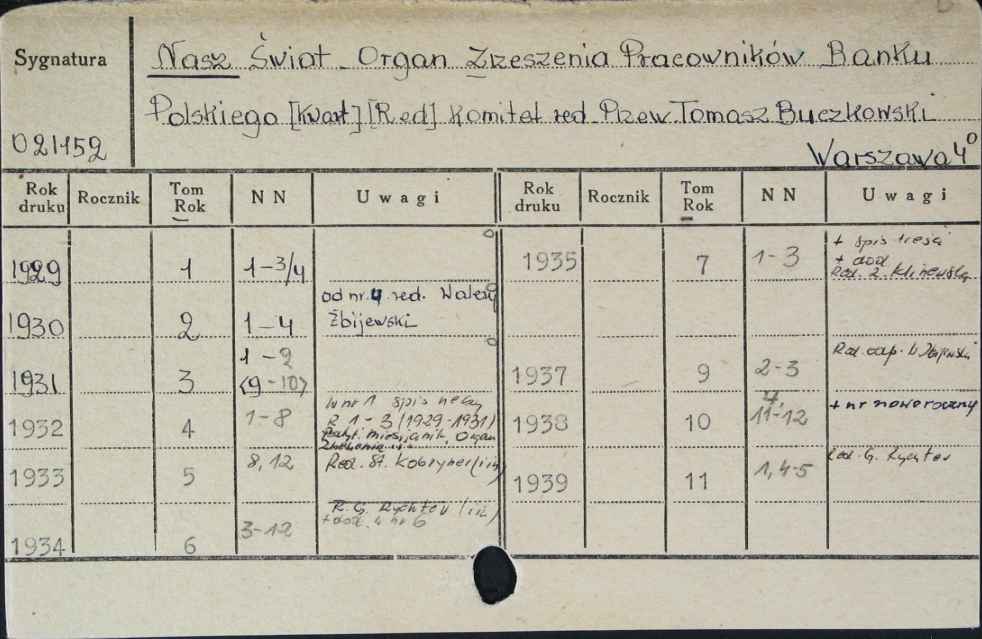 Sygnatura
Nasz Świat Organ Zrzeszenia Pracowników Banku
Polskiego [Kwart] [Red] Komitet red Przew. Tomasz Buczkowski
021152
Warszawa 4°
Rok druku Rocznik Tom Rok NN Uwagi Rok druku Rocznik Tom Rok NN Uwagi
1929 1 1-3/4
1930 2 1-4 od nr. 4 red. Walery Zbijewski
1931 3 1-2 (9-10)
1932 4 1-8 W nr 1 spis R. 1-3 (1929-1931) miesięcznik, Organ
1933 5 8, 12 Red. St. Kobryner (i in)
1934 6 3-12 R. G. Rychter (i in) + dod. nr 6
1935 7 1-3 + spis treści + dod Red. Z.
1937 9 2-3 Red. odp.
1938 10 4, 11-12 + nr noworoczny
1939 11 1, 4-5 Red. G. Rychter